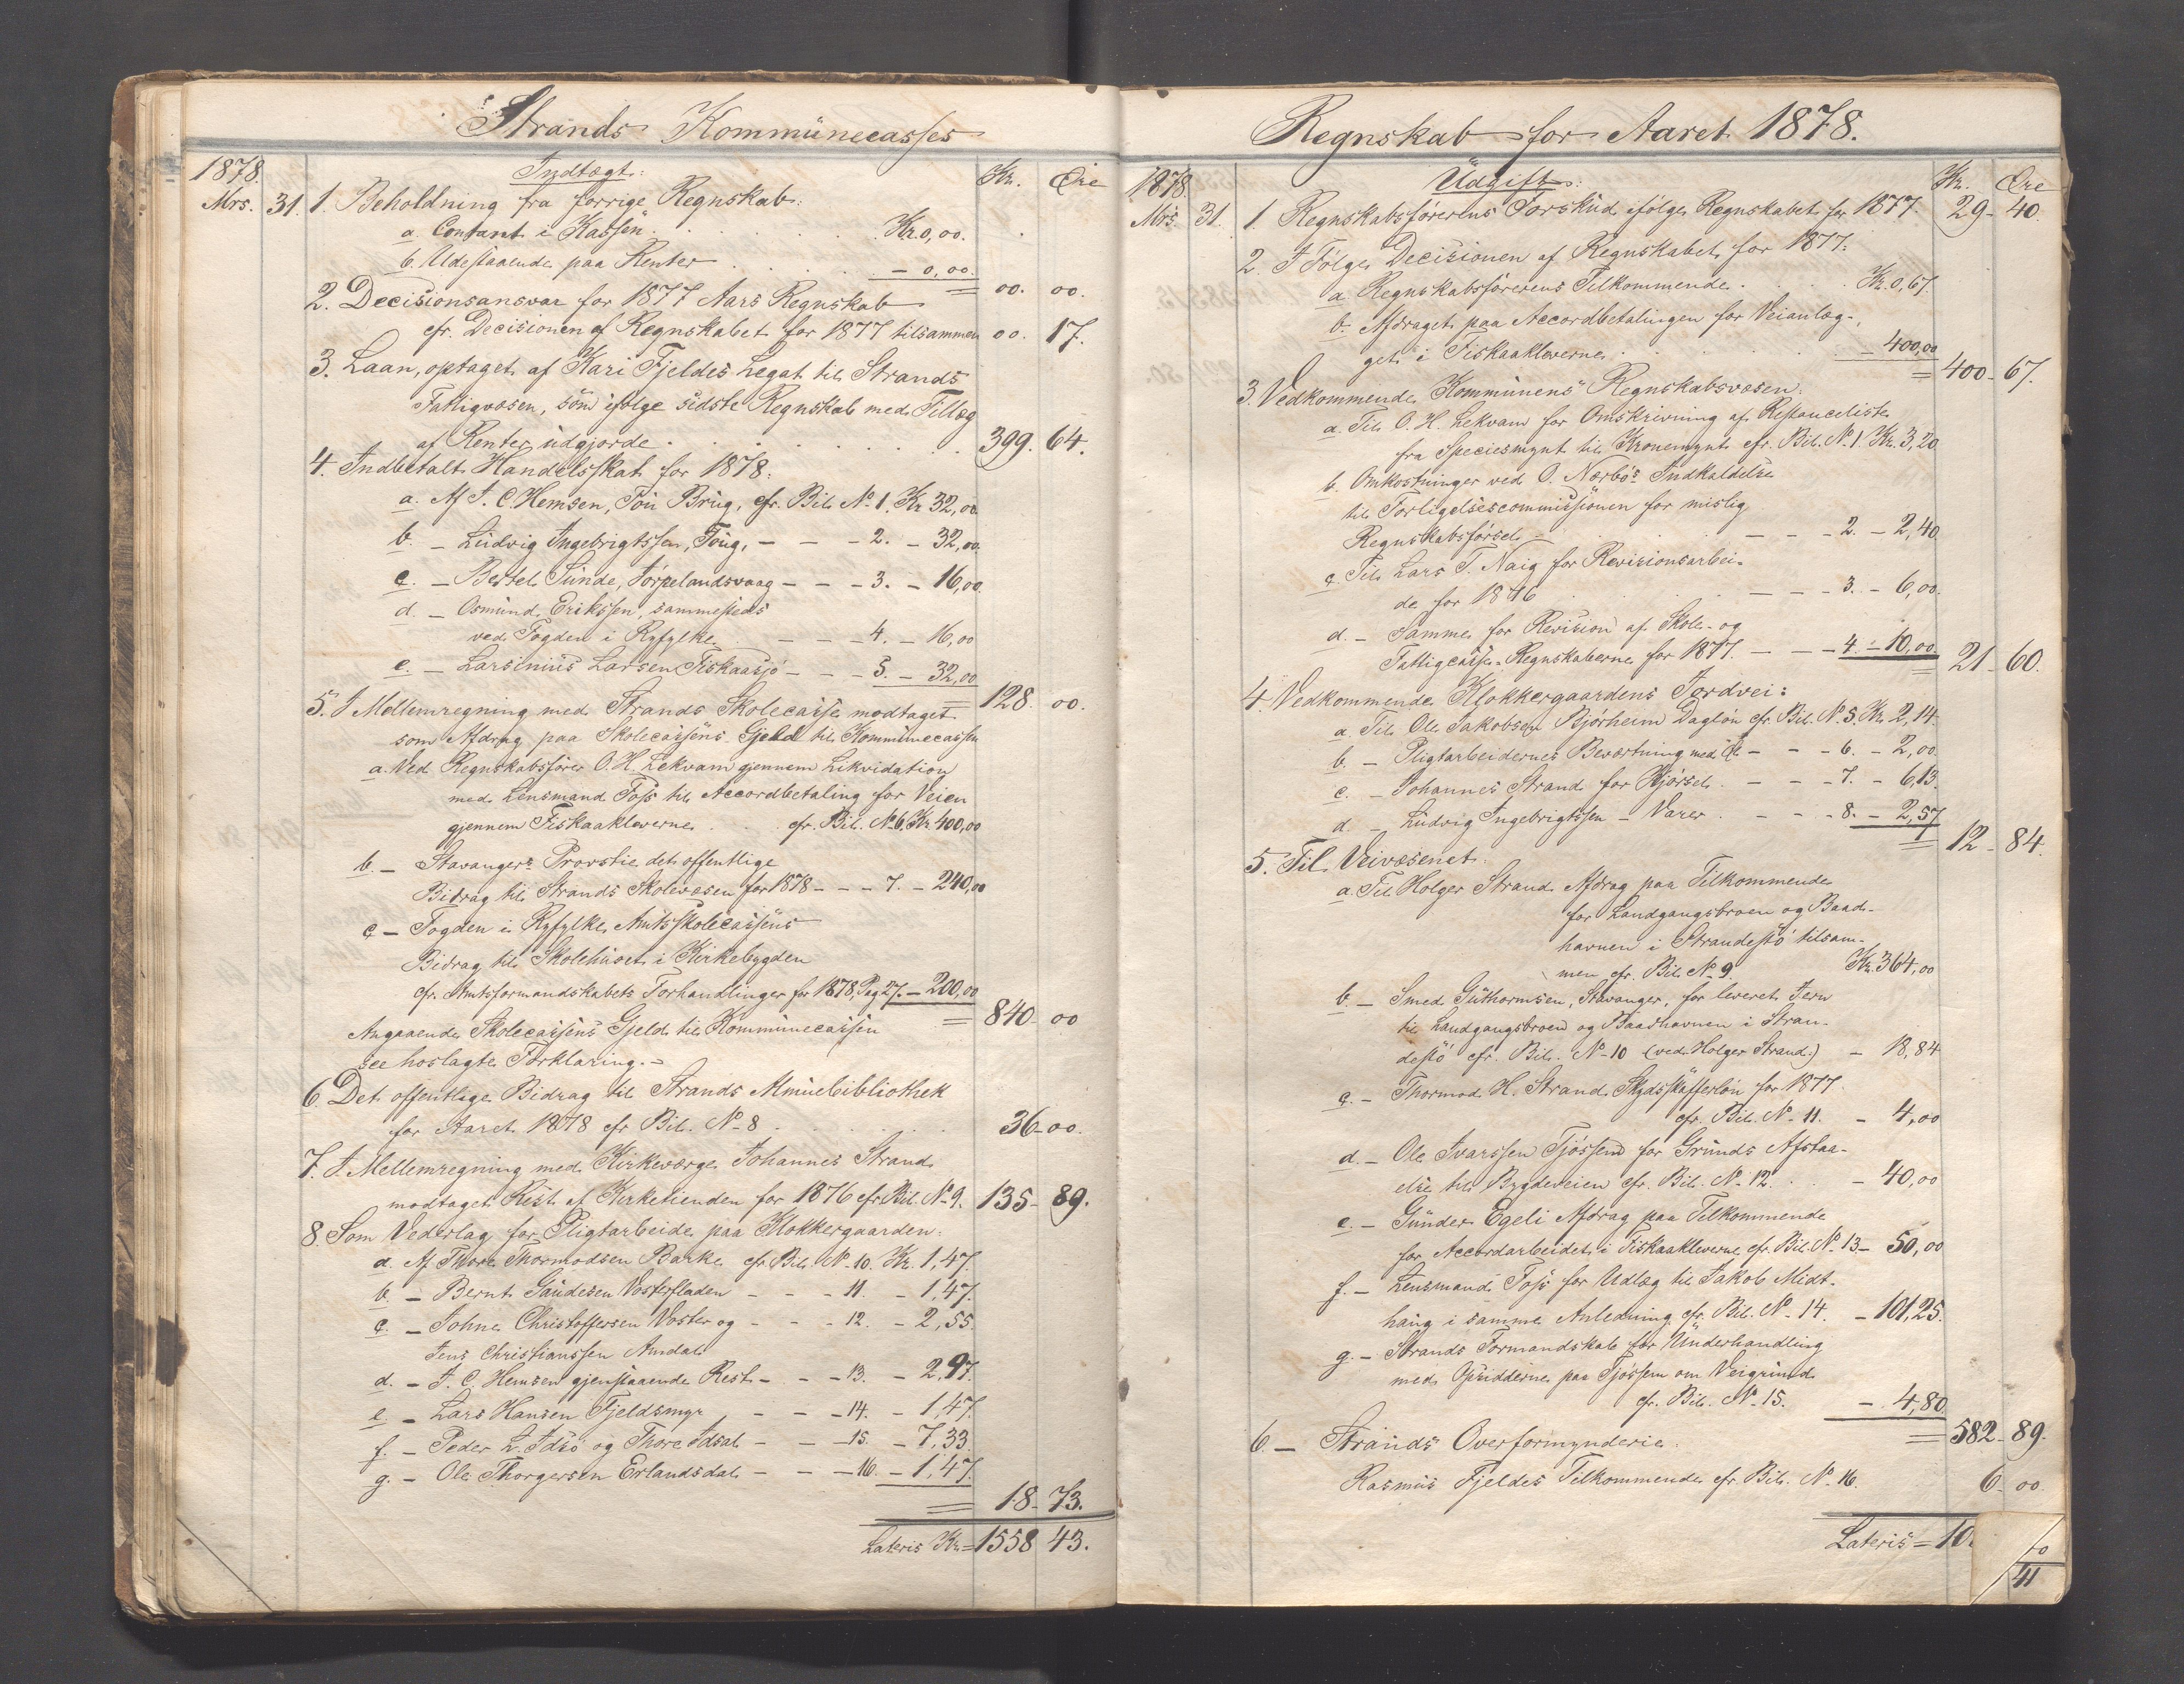 Strands Kommünecasses
1878.
Indtægt:
Kr. Øre
Mrs. 31. 1. Beholdning fra forrige Regnskab:
a. Contant i Kassen . . . Kr. 0,00.
b. Udestaaende paa Renter . . . — 0,00.
= 00. 00.
2. Decisionsansvar for 1877 Aars Regnskab
cfr. Decisionen af Regnskabet for 1877 tilsammen 00. 17.
3. Laan, optaget af Kari Fjeldes Legat til Strands
Fattigvæsen, som ifølge sidste Regnskab med Tillæg
af Renter udgjorde . . . 399. 64.
4. Indbetalt Handelsskat for 1878.
a. Af J. C. Hemsen, Tou Brug, cfr. Bil. No 1. Kr 32,00
b. — Ludvig Ingebrigtssen, Toug, — — — 2. — 32,00.
c. — Bertel Sunde, Jørpelandsvaag — — — 3. — 16,00.
d. — Osmund Erikssen, sammesteds
ved Fogden i Ryfylke — — — 4. — 16,00
e. — Larsinius Larsen Fiskaasjø — — — 5. — 32,00
= 128. 00.
5. I Mellemregning med Strands Skolecasse modtaget
som Afdrag paa Skolecassens Gjeld til Kommunecassen
a. Ved Regnskabsfører O. H. Lekvam gjennem Likvidation
med Lensmand Foss til Accordbetaling for Veien
gjennem Fiskaakleverne . . cfr. Bil. No 6. Kr 400,00
b. — Stavangers Provstie det offentlige
Bidrag til Strands Skolevæsen for 1878 — — — 7. — 240,00
c. — Fogden i Ryfylke, Amtsskolecassens
Bidrag til Skolehuset i Kirkebygden
cfr. Amtsformandskabets Forhandlinger for 1878, Pag 27. — 200,00
= 840 - 00
Angaaende Skolecassens Gjeld til Kommunecassen
see hoslagte Forklaring. —
6. Det offentlige Bidrag til Strands Almuebibliothek
for Aaret 1878 cfr Bil. No 8 . . . 36 - 00.
7. I Mellemregning med Kirkeværge Johannes Strand
modtaget Rest af Kirketienden for 1876 cfr. Bil. No 9. 135 - 89.
8. Som Vederlag for Pligtarbeide paa Klokkergaarden:
a. Af Thore Thormodsen Barke cfr. Bil. No 10. Kr. 1,47.
b. — Bernt Gaudesen Vosterfladen — — — 11. — 1,47.
c. — Johne Christoffersen Voster og — — — 12. — 2,55.
Jens Christianssen Amdal
d. — J. C. Hemsen gjenstaaende Rest — — — 13. — 2,97.
e. — Lars Hansen Fjeldsmyr — — — 14. — 1,47.
f. — Peder L. Idsø og Thore Idsal — — — 15. — 7,33.
g. — Ole Thorgersen Erlandsdal — — — 16. — 1,47.
= 18 - 73.
Lateris Kr = 1558 43.
Regnskab for Aaret 1878.
1878.
Udgift:
Kr. Øre
Mrs. 31. 1. Regnskabsførerens Forskud ifølge Regnskabet for 1877. 29 - 40.
2. I Følge Decisionen af Regnskabet for 1877:
a. Regnskabsførerens Tilkommende . . . Kr. 0,67.
b. Afdraget paa Accordbetalingen for Veianlæg-
get i Fiskaakleverne . . . — 400,00
= 400 - 67.
3. Vedkommende Kommunens Regnskabsvæsen:
a. Til O. H. Lekvam for Omskrivning af Restanceliste
fra Speciesmynt til Kronemynt cfr. Bil. No 1. Kr. 3,20
b. Omkostninger ved O. Nærbø's Indkaldelse
til Forligelsescommissionen for mislig
Regnskabsførsel . . — — — 2. — 2,40
c. Til Lars T. Naig for Revisionsarbei-
de for 1876 . . — — — 3. — 6,00.
d. — Samme for Revision af Skole- og
Fattigcasse-Regnskaberne for 1877. — — — 4. — 10,00.
= 21 - 60.
4. Vedkommende Klokkergaardens Jordvei:
a. Til Ole Jakobsen Bjørheim Dagløn cfr. Bil. No 5. Kr. 2,14.
b. — Pligtarbeidernes Beværtning med Øl — — — 6. — 2,00.
c. — Johannes Strand for Kjørsel . — — — 7. — 6,13.
d. — Ludvig Ingebrigtssen — Varer . — — — 8. — 2,57
= 12 - 84.
5. Til Veivæsenet:
a. Til Holger Strand Afdrag paa Tilkommende
for Landgangsbroen og Baad-
havnen i Strandestø tilsam-
men cfr. Bil. No 9. Kr. 364,00
b. — Smed Guthormsen, Stavanger, for leveret Jern
til Landgangsbroen og Baadhavnen i Stran-
destø cfr. Bil. No 10 (ved Holger Strand.) — 18,84
c. — Thormod H. Strand Skydsskafferløn for 1877.
cfr. Bil. No 11. — 4,00
d. — Ole Ivarssen Tjøssem for Grunds Afstaa-
else til Bygdeveien cfr. Bil. No 12. . — 40,00
e. — Gunder Egeli Afdrag paa Tilkommende
for Accordarbeidet i Fiskaakleverne cfr. Bil. No 13 — 50,00
f. — Lensmand Foss for Udlæg til Jakob Midt-
haug i samme Anledning cfr. Bil. No 14. — 101,25.
g. — Strands Formandskab for Underhandling
med Opsidderne paa Tjøssem om Veigrund
cfr. Bil. No 15. — 4,80
= 582 - 89.
6. — Strands Overformynderie:
Rasmus Fjeldes Tilkommende cfr. Bil. No 16. 6 - 00.
Lateris = 10
40
41